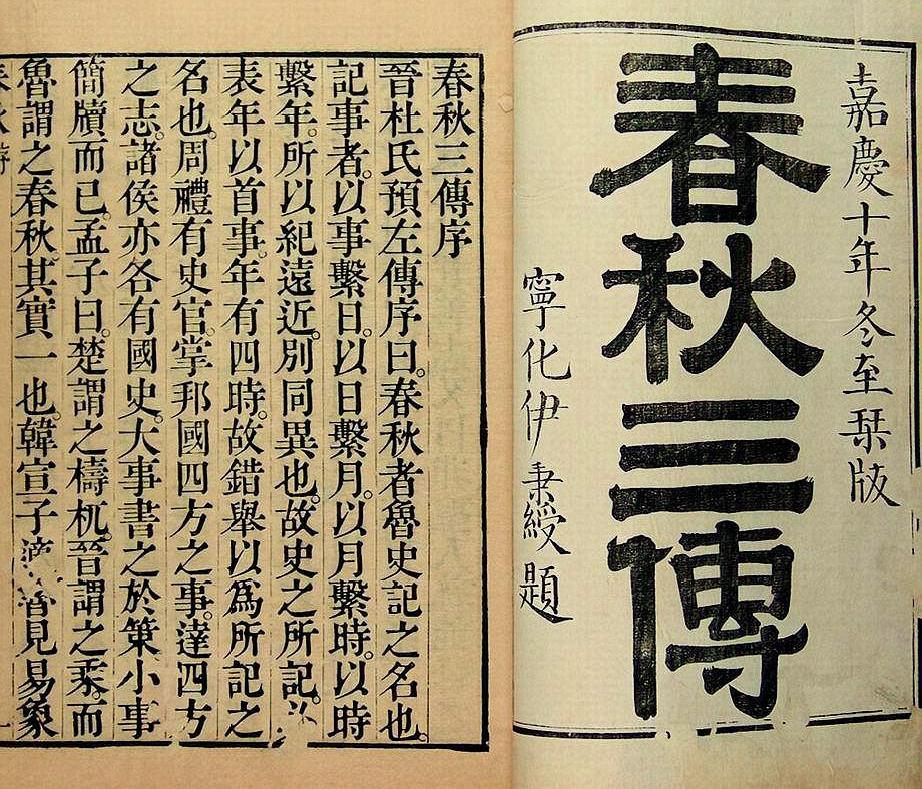 嘉慶十年冬至栞版
春秋三傳
寧化伊秉綬題
春秋三傳序
晉杜氏預左傳序曰。春秋者魯史記之名也。
記事者。以事繫日。以日繫月。以月繫時。以時
繫年。所以紀遠近。別同異也。故史之所記。必
表年以首事。年有四時。故錯舉以爲所記之
名也。周禮有史官。掌邦國四方之事。達四方
之志。諸侯亦各有國史。大事書之於策。小事
簡牘而已。孟子曰。楚謂之檮杌。晉謂之乘。而
魯謂之春秋。其實一也。韓宣子適魯見易象
春秋